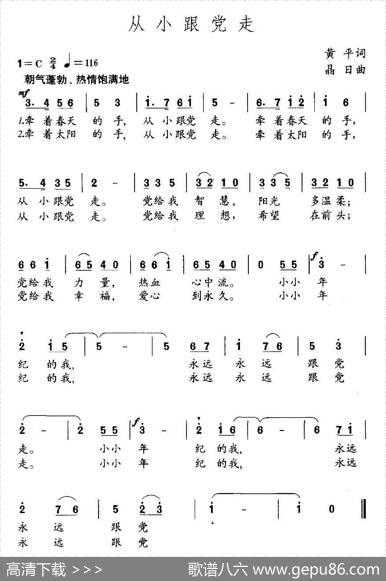 从小跟党走
1=C 2/4 ♩=116
黄 平词
晶 日曲
朝气蓬勃、热情饱满地
mf
3. 4 5 6 3 5 i. 7 6 i 5 - 6. 7 i 2 i 6
1.牵着春天的手,从小跟党走。牵着春天的手,
2.牵着太阳的手,从小跟党走。牵着太阳的手,
5. 4 3 5 2 - 3 3 3 5 3 2 1 0 3 4 3 3 2 1 0
从小跟党走。党给我智慧,阳光多温柔;
从小跟党走。党给我理想,希望在前头;
f
6 6 i 6 5 4 0 6 6 i 5 5 4 0 0 5 5 3 -
党给我力量,热血心中流。小小年
党给我幸福,爱心到永久。小小年
2 i 5 5 - 5 - i 7 6 i 7 6 5 3
纪的我,永远永远跟党
纪的我,永远永远跟党
f
2 - 2 5 5 3 - 2 i 6 6 - 6 7 i
走。小小年纪的我,永远
走。小小年纪的我,永远
2 - 2 7 6 5 2 i - i 0
永远跟党
永远跟党
高清下载 >>>
歌谱八六 www.gepu86.com